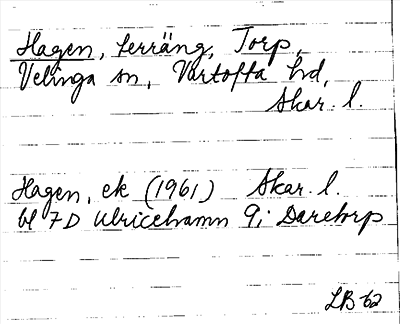 Hagen, terräng, Torp,
Velinga sn, Vartofta hd,
Skar. l.
Hagen, ek (1961) Skar. l.
bl 7D Ulricehamn 9i Daretorp
LB-62